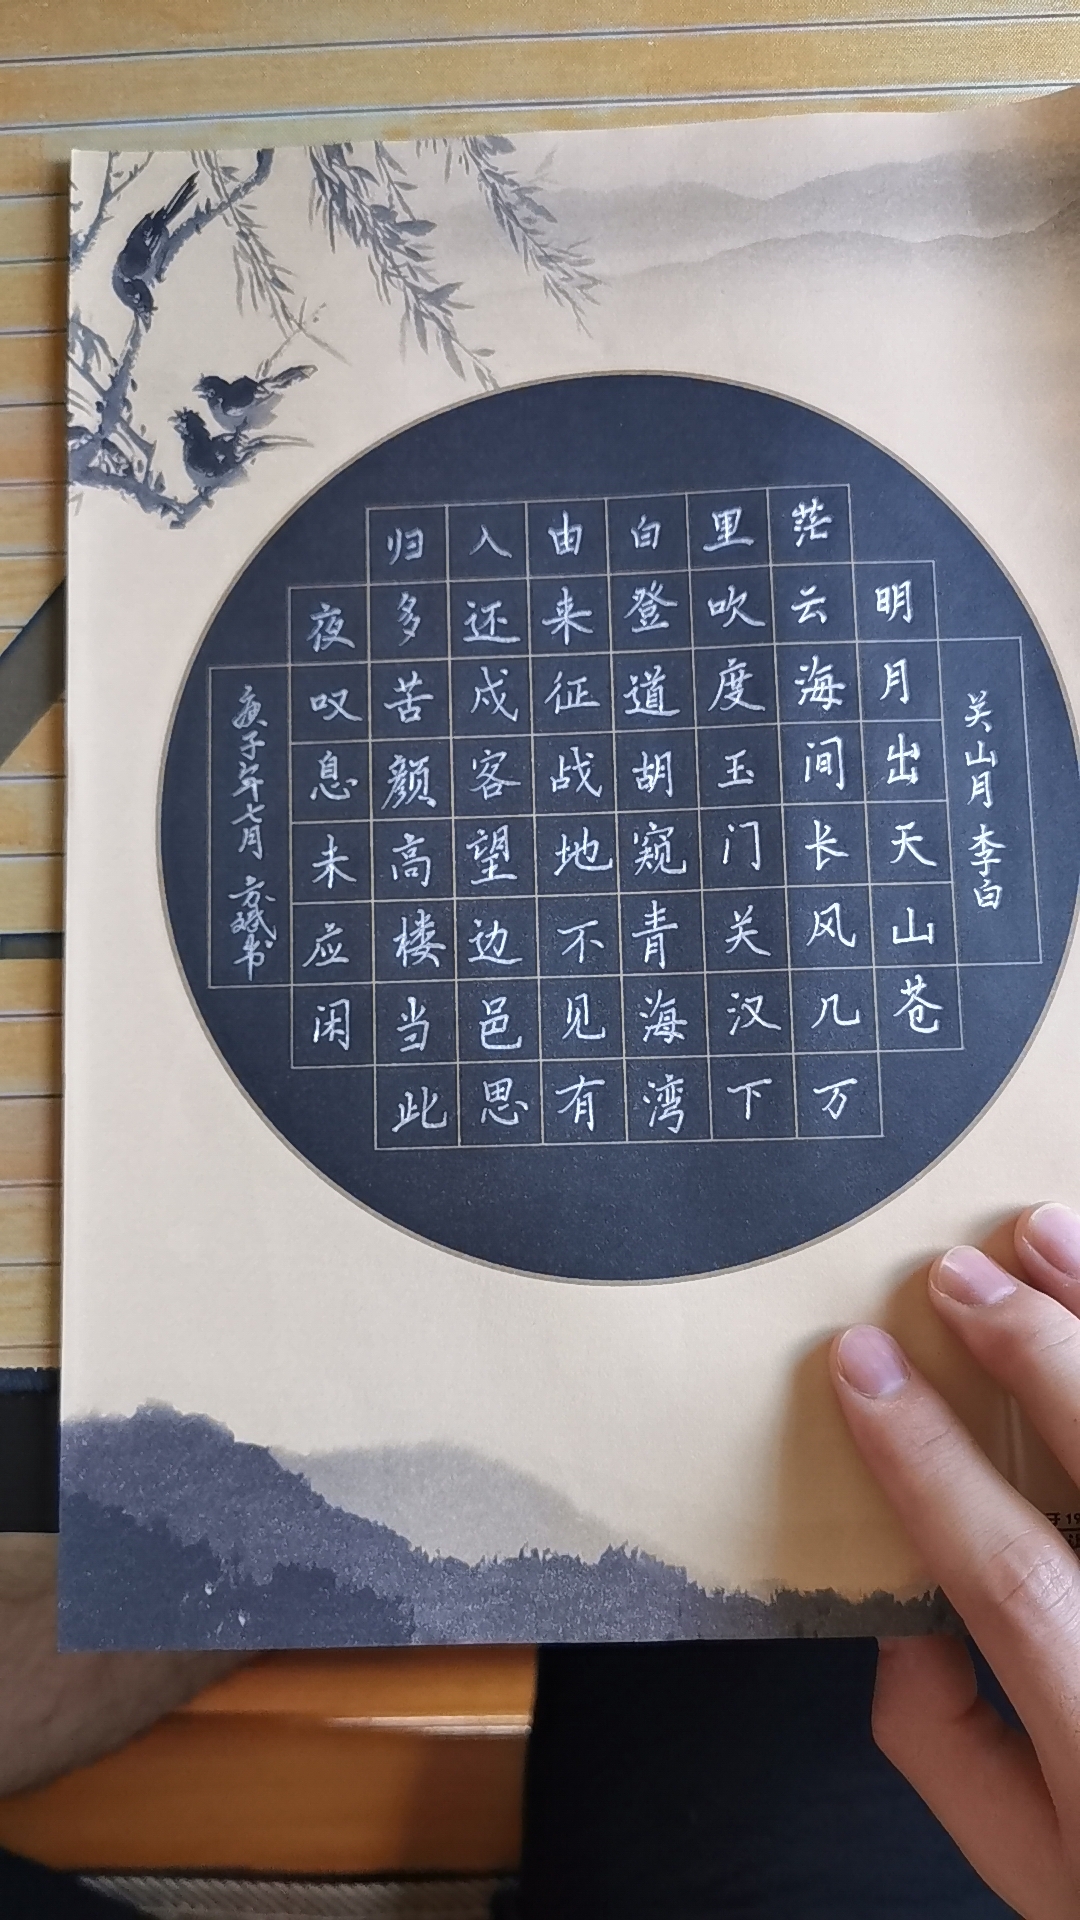 关山月 李白
明月出天山苍
茫云海间长风几万
里吹度玉门关汉下
白登道胡窥青海湾
由来征战地不见有
入还戍客望边邑思
归多苦颜高楼当此
夜叹息未应闲
庚子年七月 方书